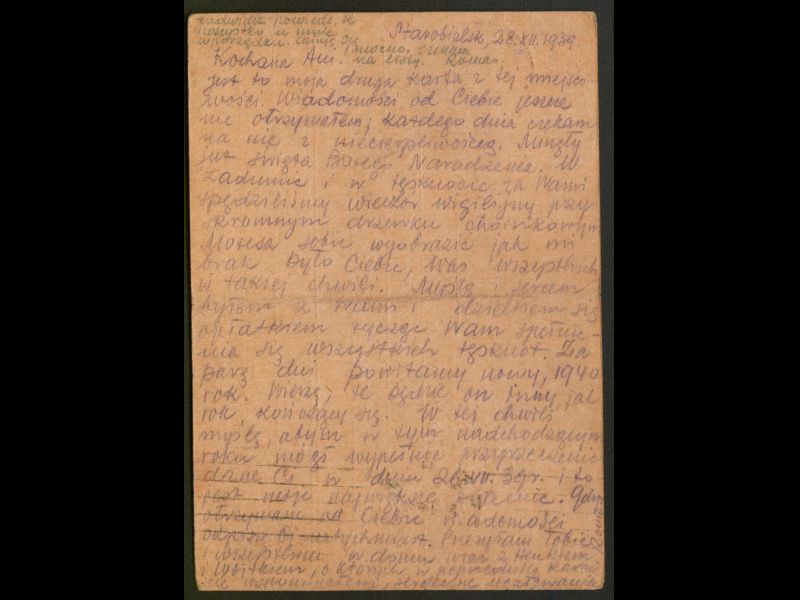 Jadwidze powiedz, że
wszystko u mnie
w porządku. Całuję Cię
mocno. Czekam
na listy. Roman.
Starobielsk, 28.XII.1939.
Kochana Ani!
Jest to moja druga karta z tej miejsco
wości. Wiadomości od Ciebie jeszcze
nie otrzymałem; każdego dnia czekam
na nie z niecierpliwością. Minęły
już święta Bożego Narodzenia. W
zadumie i w tęsknocie za Wami
spędziliśmy wieczór wigilijny przy
skromnym drzewku choinkowym.
Możesz sobie wyobrazić jak mi
brak było Ciebie, Was wszystkich
w takiej chwili. Myślą i sercem
byłem z Wami i dzieliłem się
opłatkiem życząc Wam spełnie-
nia się wszystkich tęsknot. Za
parę dni powitamy nowy, 1940
rok. Wierzę, że będzie on inny jak
rok kończący się. W tej chwili
myślę, abym w tym nadchodzącym
roku mógł wypełnić przyrzeczenie
dane Ci w dniu 26.VII.39r. i to
jest moje największe życzenie. Gdy
otrzymam od Ciebie wiadomości
odpiszę Ci natychmiast. Pozdrawiam Tobie
i wszystkim w domu wraz z Heńkiem
i Wojtkiem, o których w poprzedniej karcie
nie wspomniałem, serdeczne ucałowania